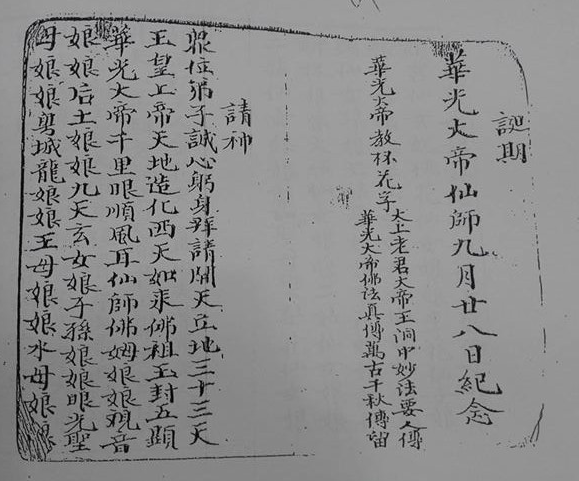 誕期
華光大帝仙師九月廿八日紀念
華光大帝教杯花字
太上老君大帝王洞中妙法要人傳
華光大帝佛法真傳萬古千秋傳留
請神
躬位弟子誠心躬身拜請開天立地三十三天
玉皇上帝天地造化西天如來佛祖玉封五顯
華光大帝千里眼順風耳仙師佛姆娘娘观音
娘娘后土娘娘九天玄女娘子孫娘娘眼光聖
母娘娘粤城龍娘娘王母娘娘水母娘娘